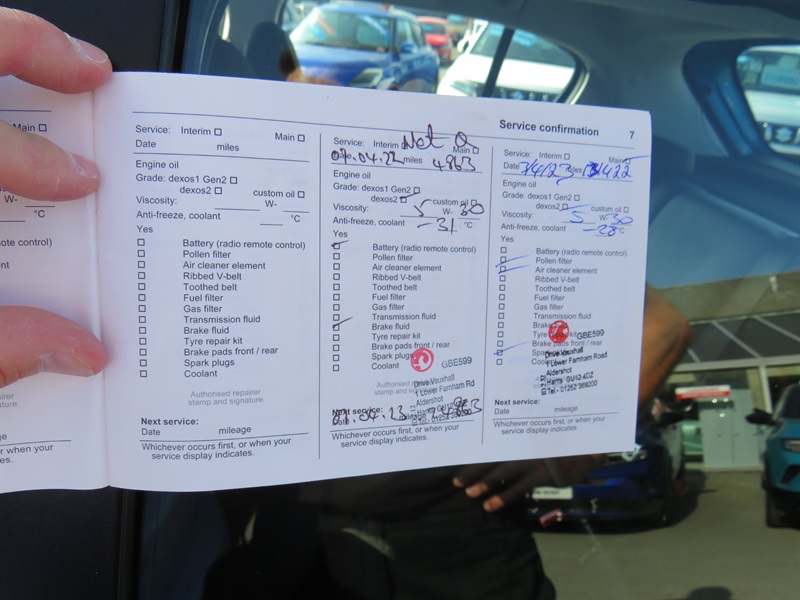 Service confirmation 7
Service: Interim Main
Date miles
Engine oil
Grade: dexos1 Gen2
dexos2 custom oil
Viscosity: W-
Anti-freeze, coolant °C
Yes
Battery (radio remote control)
Pollen filter
Air cleaner element
Ribbed V-belt
Toothed belt
Fuel filter
Gas filter
Transmission fluid
Brake fluid
Tyre repair kit
Brake pads front / rear
Spark plugs
Coolant
Authorised repairer
stamp and signature
Next service:
Date mileage
Whichever occurs first, or when your
service display indicates.
Not a
Service: Interim Main
.04.22 miles 4863
Engine oil
Grade: dexos1 Gen2
dexos2 custom oil
Viscosity: 5 W- 30
Anti-freeze, coolant -31 °C
Yes
Battery (radio remote control)
Pollen filter
Air cleaner element
Ribbed V-belt
Toothed belt
Fuel filter
Gas filter
Transmission fluid
Brake fluid
Tyre repair kit
Brake pads front / rear
Spark plugs
Coolant
GBE599
Authorised
stamp and
Drive Vauxhall
1 Lower Farnham Rd
Aldershot
Next service:
.04.23
Whichever occurs first, or when your
service display indicates.
Service: Interim Main
Date 7/4/23 miles
Engine oil
Grade: dexos1 Gen2
dexos2 custom oil
Viscosity: 5 W- 30
Anti-freeze, coolant -28 °C
Yes
Battery (radio remote control)
Pollen filter
Air cleaner element
Ribbed V-belt
Toothed belt
Fuel filter
Gas filter
Transmission fluid
Brake
Tyre kit GBE599
Brake pads front / rear
Drive Vauxhall
1 Lower Farnham Road
Aldershot
Hants GU12 4DZ
Tel - 01252 369200
Next service:
Date mileage
Whichever occurs first, or when your
service display indicates.
remote control)
°C
W-